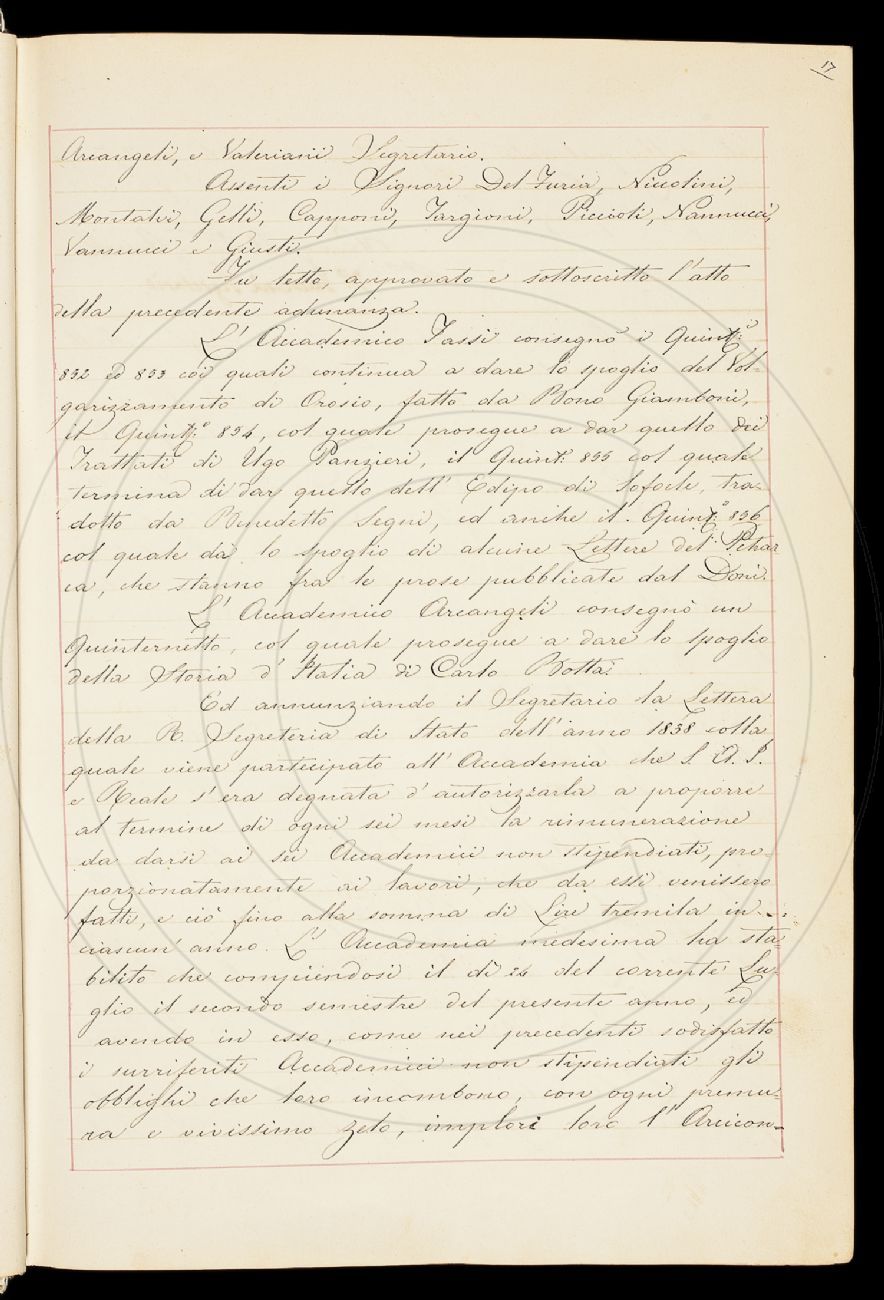 17
Arcangeli, e Valeriani Segretario.
Assenti i Signori Del Furia, Niccolini,
Montalvi, Gelli, Capponi, Targioni, Piccioli, Nannucci,
Vannucci e Giusti.
Fu letto, approvato e sottoscritto l'atto
della precedente adunanza.
L' Accademico Tassi consegnò i Quint.i
832 ed 833 coi quali continua a dare lo spoglio del Vol-
garizzamento di Orosio, fatto da Bono Giamboni,
il Quint.o 834, col quale prosegue a dar quello dei
Trattati di Ugo Panzieri, il Quint.o 835 col quale
termina di dar quello dell' Edipo di Sofocle, tra-
dotto da Benedetto Segni, ed anche il Quint.o 836
col quale dà lo spoglio di alcune Lettere del Petrar
ca, che stanno fra le prose pubblicate dal Doni.
L' Accademico Arcangeli consegnò un
Quinternetto, col quale prosegue a dare lo spoglio
della Storia d' Italia di Carlo Botta.
Ed annunziando il Segretario la Lettera
della R. Segreteria di Stato dell' anno 1838 colla
quale viene partecipato all' Accademia che S. A. I.
e Reale s' era degnata d' autorizzarla a proporre
al termine di ogni sei mesi la rimunerazione
da darsi ai sei Accademici non stipendiati, pro-
porzionatamente ai lavori, che da essi venissero
fatti, e ciò fino alla somma di Lire tremila in
ciascun' anno. L' Accademia medesima ha sta-
bilito che compiendosi il dì 24 del corrente Lu-
glio il secondo semestre del presente anno, ed
avendo in esso, come nei precedenti sodisfatto
i surriferiti Accademici non stipendiati gli
obblighi che loro incombono, con ogni premu-
ra e vivissimo zelo, implori loro l' Arcicon-